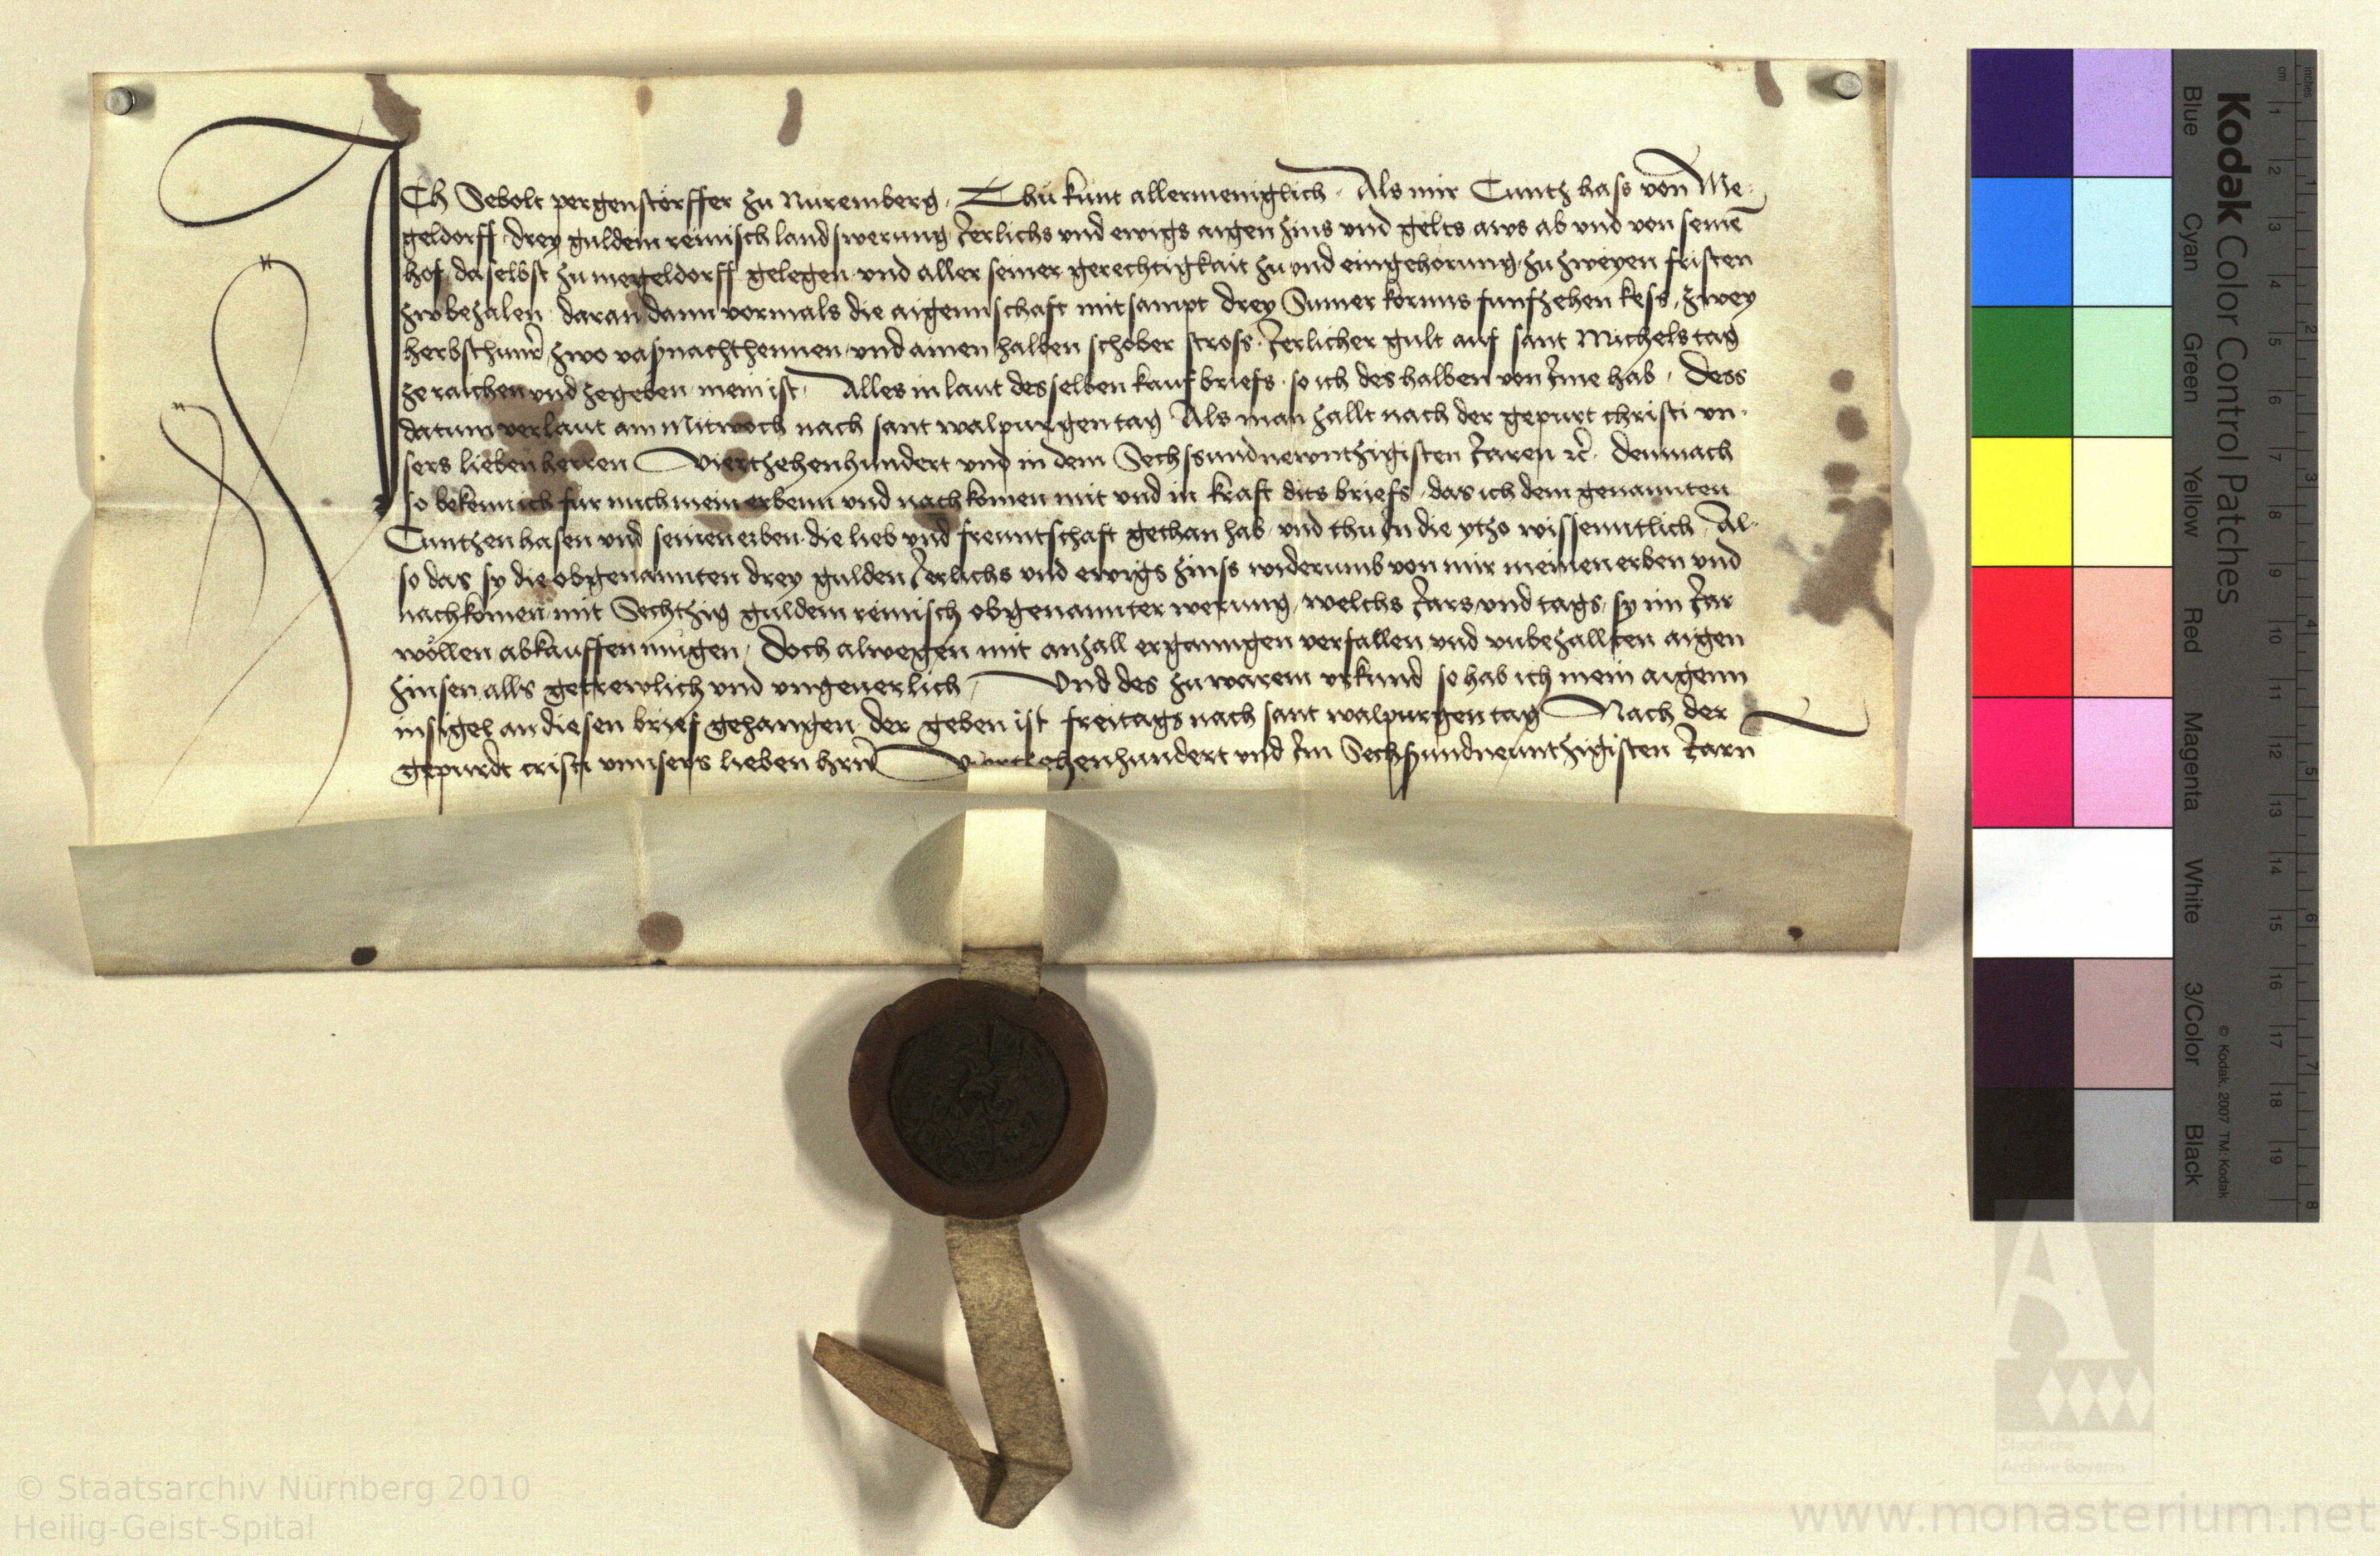 ICh Sebolt pergenstörffer zu Nuremberg. Thu kunt allermeniglich. Als mir Cuntz hass von Me-
geldorff drey guldein reinisch landswerung Ierlichs vnd ewigs aigen zins vnd gelts aws ab vnd von seinē
hof daselbst zu megeldorff gelegen vnd aller seiner gerechtigkait zu vnd eingehörung zu zweyen fristen
zwbezalen daran dann vormals die aigennschaft mitsampt drey Sumer kornns funfzehen kess, zwey
herbsthunr zwo vasnachthennen vnd ainen halben schober stross Ierlicher gult auf sant Michelstag
ze raichen vnd zegeben mein ist. Alles in laut desselben kaufbriefs so ich deshalben von Ime hab. Dess
datum verlaut am Mitwoch nach sant walpurgen tag Als man zallt nach der gepurt christi vn-
sers lieben herren vierthzehenhundert vnd in dem Sechssundnewnthzigisten Iaren rc. demnach
so bekenn ich fur mich mein erbenn vnd nachkömen mit vnd in kraft dits briefs, das ich dem genannten
Cunthzen hasen vnd seinen erben die lieb vnd freuntschaft gethan hab vnd thu In die ytzo wissenntlich Al-
so das sy die obgenannten drey gulden Ierlichs vnd ewigs zinss widerumb von mir meinen erben vnd
nachkömen mit Sechtzig guldein reinisch obgenannter werung, welchs Iars vnd tags, sy im Iar
wöllen abkauffen mugen, Doch alwegen mit anzall erganngen verfallen vnd vnbezallten aigen
zinsen alls getrewlich vnd vngeuerlich, Vnd des zu warem vrkund so hab ich mein aigenn
insigel an diesen brief gehangen der geben ist freitags nach sant walpurgen tag Nach der
gepurdt cristi vnnsers lieben hrnn vierthzehenhundert vnd Im Sechssundneunthzigisten Iarn
Kodak Color Control Patches
Blue Cyan Green Yellow Red Magenta White 3/Color Black
© Kodak, 2007 TM: Kodak
inches 1 2 3 4 5 6 7 8
cm 1 2 3 4 5 6 7 8 9 10 11 12 13 14 15 16 17 18 19
A
Staatliche
Archive Bayerns
© Staatsarchiv Nürnberg 2010
Heilig-Geist-Spital
www.monasterium.net